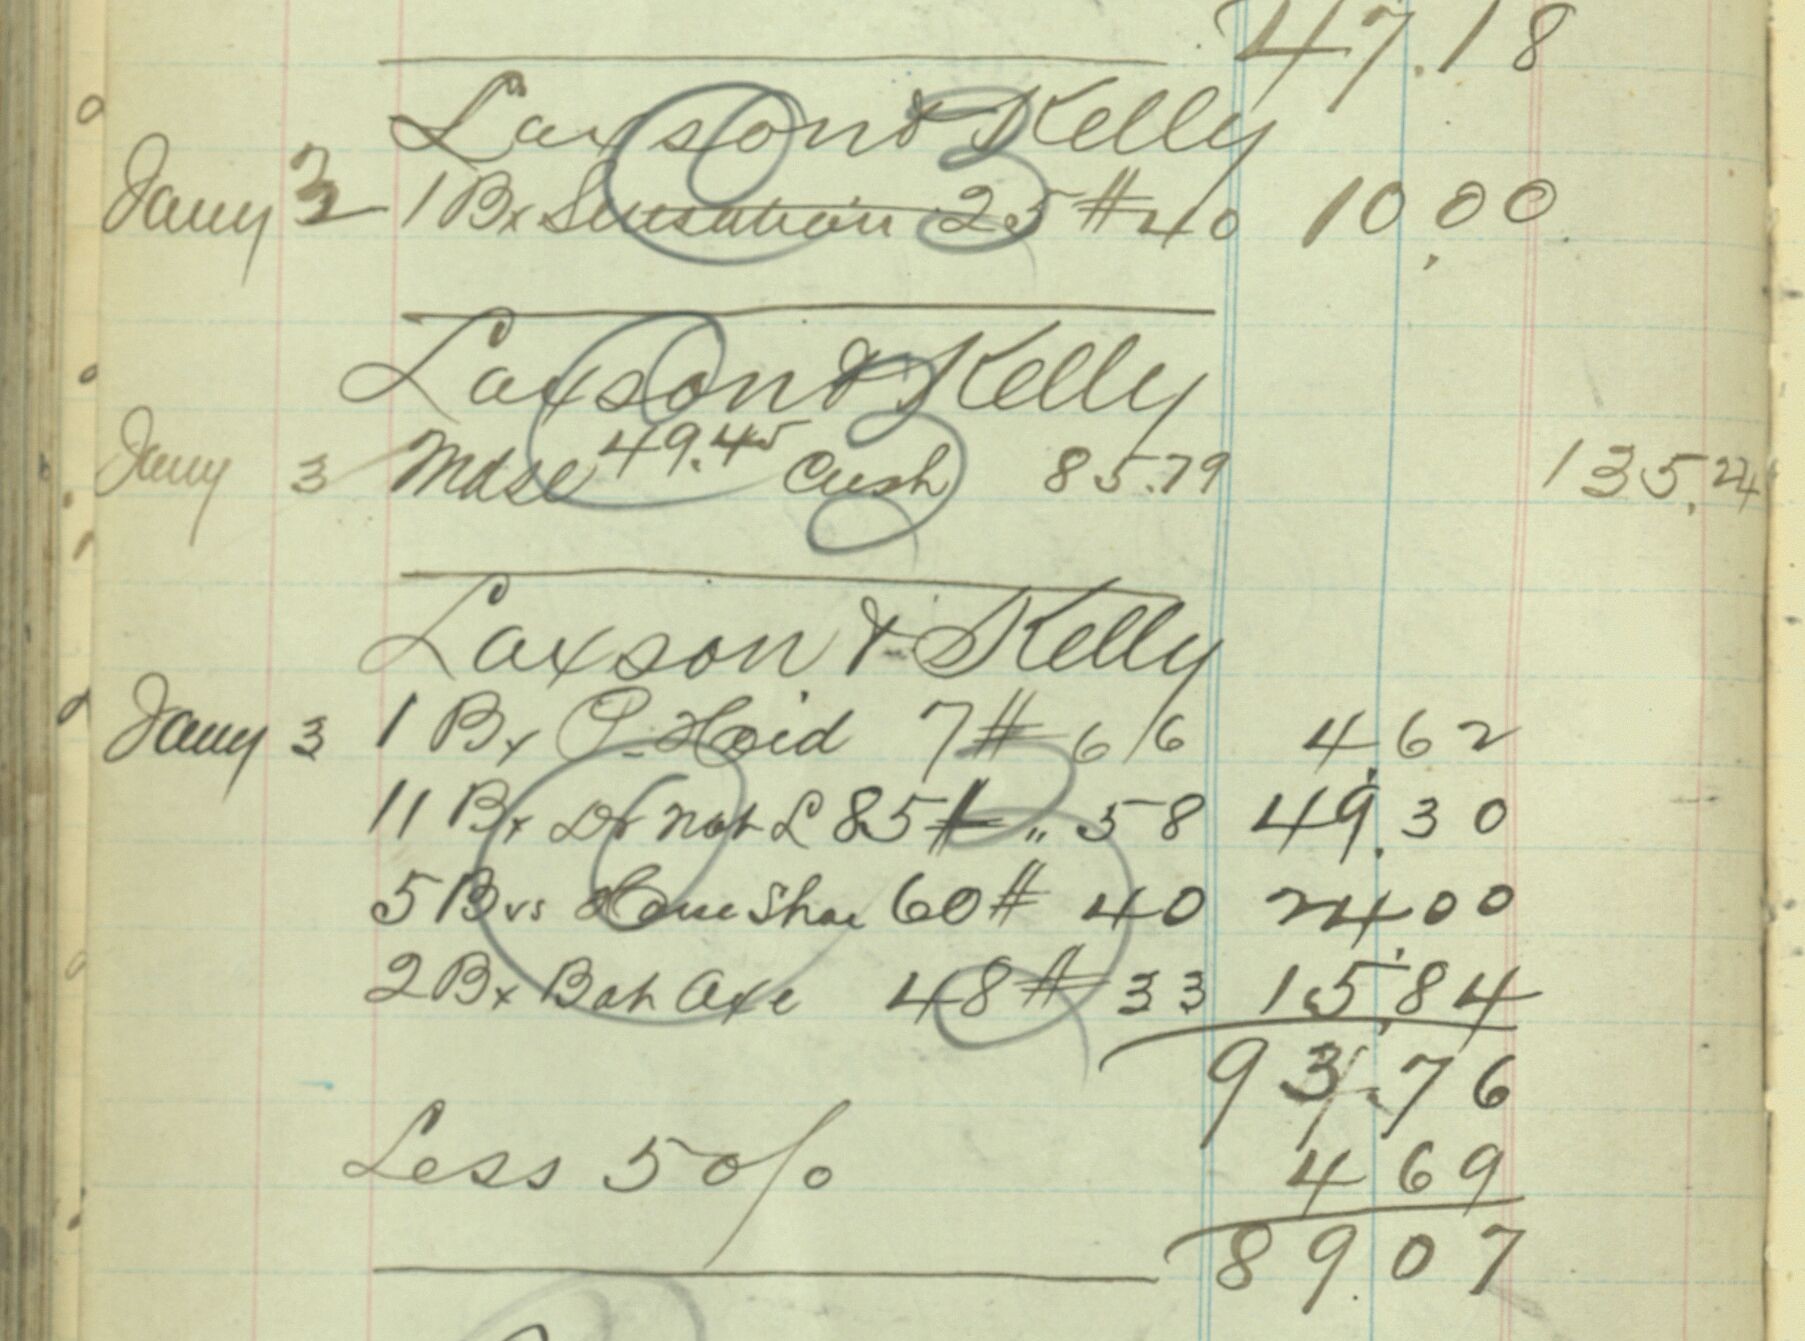 47.18
Laxson & Kelly
Jany 2 1 Bx Sensation 25 # 40 10.00
Laxson & Kelly
Jany 3 Mdse 49.45 Cash 85.79 135.24
Laxson & Kelly
Jany 3 1 Bx P. Heid 7 # 66 4.62
11 Bx Dr Nat L 85 # " 58 49.30
5 Bxs Horse Shoe 60 # 40 24.00
2 Bx Bat Axe 48 # 33 15.84
93.76
Less 5 o/o 4 69
89.07